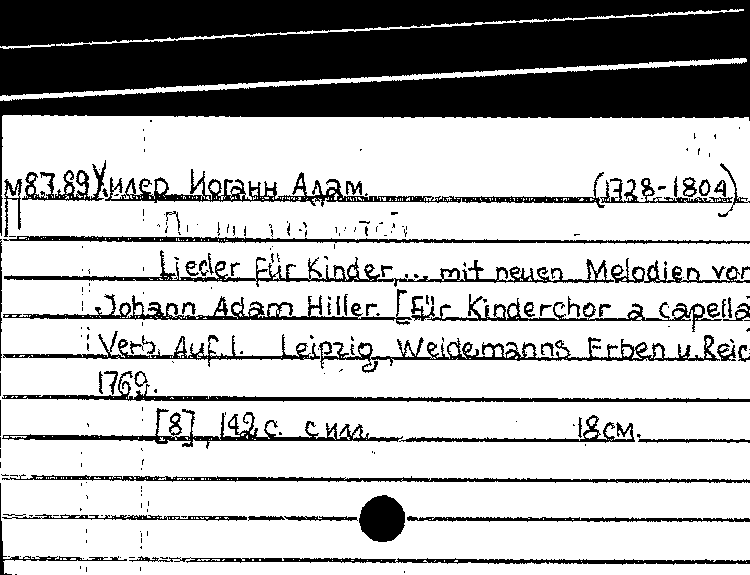 м8.7.89 Хилер Иоганн Адам. (1728-1804)
Lieder für Kinder, ... mit neuen Melodien von
Johann Adam Hiller. [Für Kinderchor a capella
Verb. Auf. 1. Leipzig, Weidemanns Erben u. Reic
1769.
[8], 142 с. с илл. 18 см.